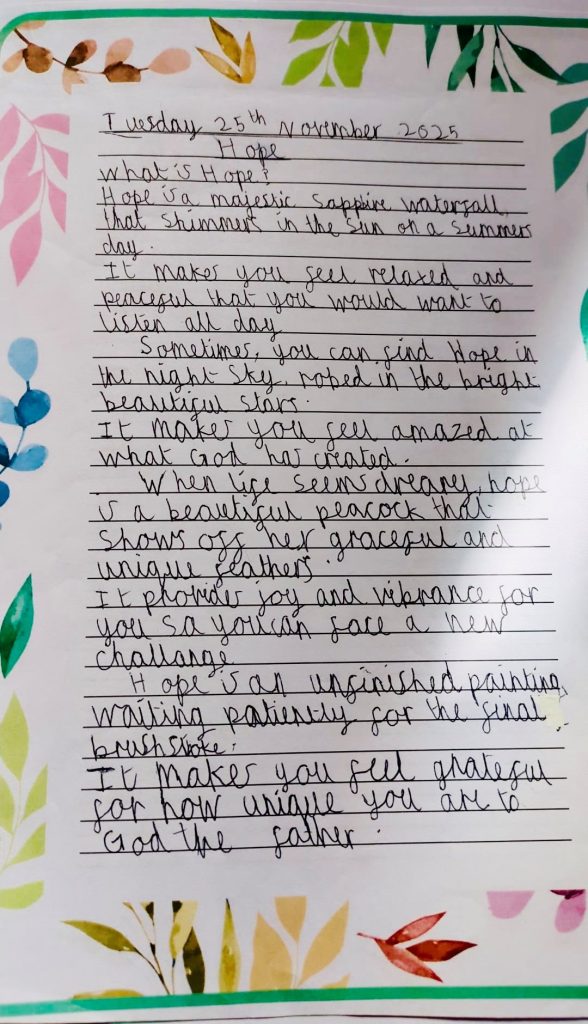 Tuesday 25th November 2025
Hope
What is Hope?
Hope is a majestic sapphire waterfall,
that shimmers in the sun on a summers
day.
It makes you feel relaxed and
peaceful that you would want to
listen all day
Sometimes, you can find Hope in
the night sky, robed in the bright
beautiful stars.
It makes you feel amazed at
what God has created.
When life seems dreary, hope
is a beautiful peacock that
shows off her graceful and
unique feathers.
It provides joy and vibrance for
you so you can face a new
challange
Hope is an unfinished painting,
waiting patiently for the final
brushstroke.
It makes you feel grateful
for how unique you are to
God the father.